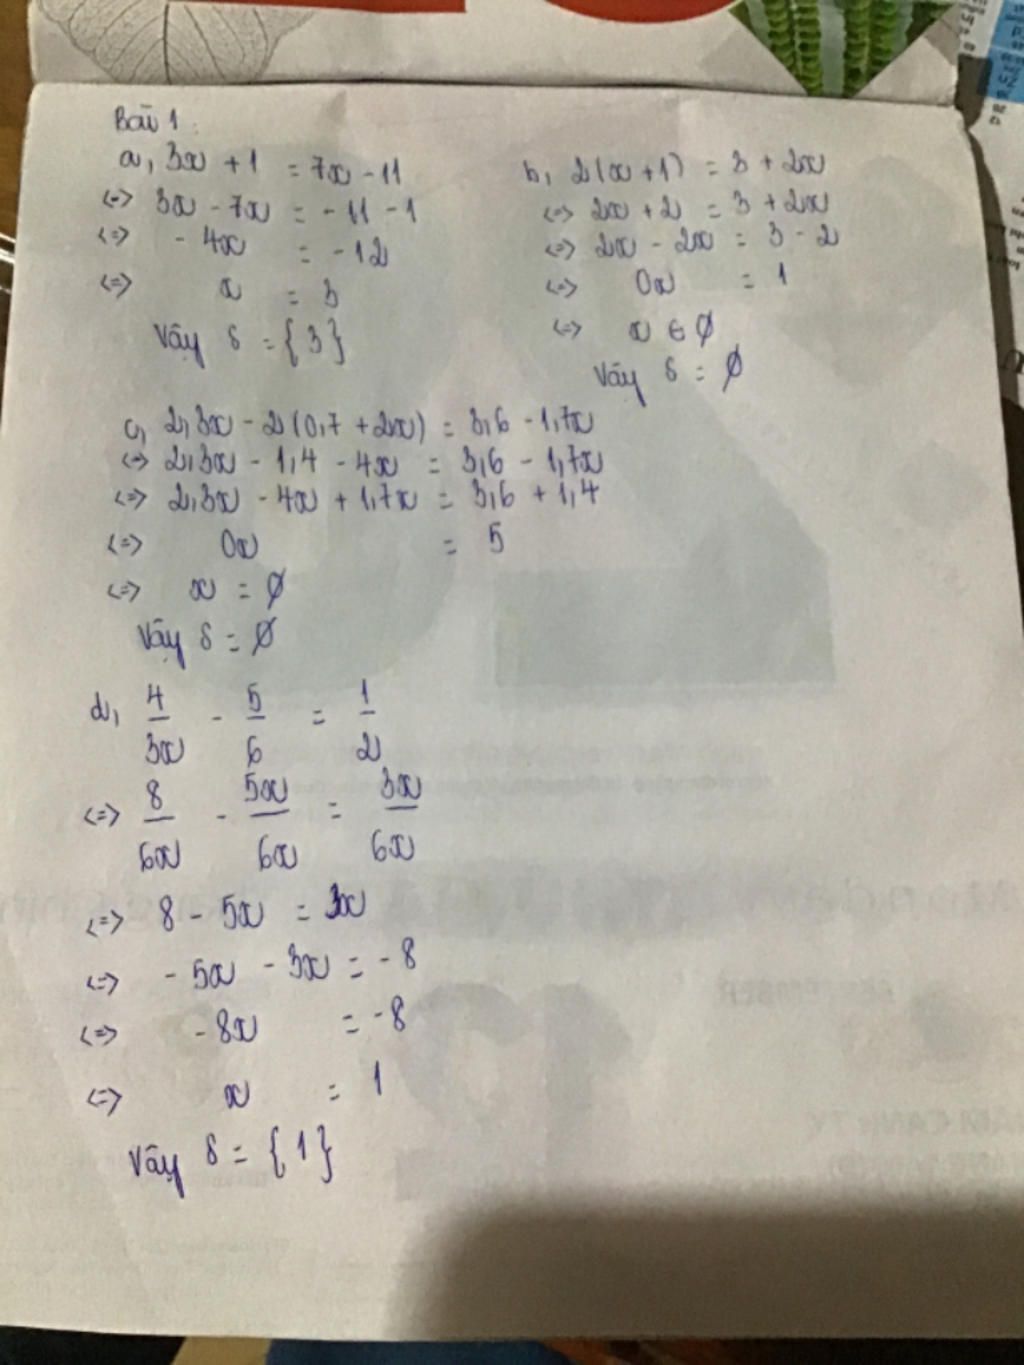 Bài 1:
a, 3x + 1 = 7x - 11
<=> 3x - 7x = - 11 - 1
<=> - 4x = - 12
<=> x = 3
Vậy S = { 3 }
b, 2(x + 1) = 3 + 2x
<=> 2x + 2 = 3 + 2x
<=> 2x - 2x = 3 - 2
<=> 0x = 1
<=> x ∈ ∅
Vậy S = ∅
c, 2,3x - 2(0,7 + 2x) = 3,6 - 1,7x
<=> 2,3x - 1,4 - 4x = 3,6 - 1,7x
<=> 2,3x - 4x + 1,7x = 3,6 + 1,4
<=> 0x = 5
<=> x = ∅
Vậy S = ∅
d, 4/3x - 5/6 = 1/2
<=> 8/6x - 5x/6x = 3x/6x
<=> 8 - 5x = 3x
<=> - 5x - 3x = - 8
<=> - 8x = - 8
<=> x = 1
Vậy S = { 1 }